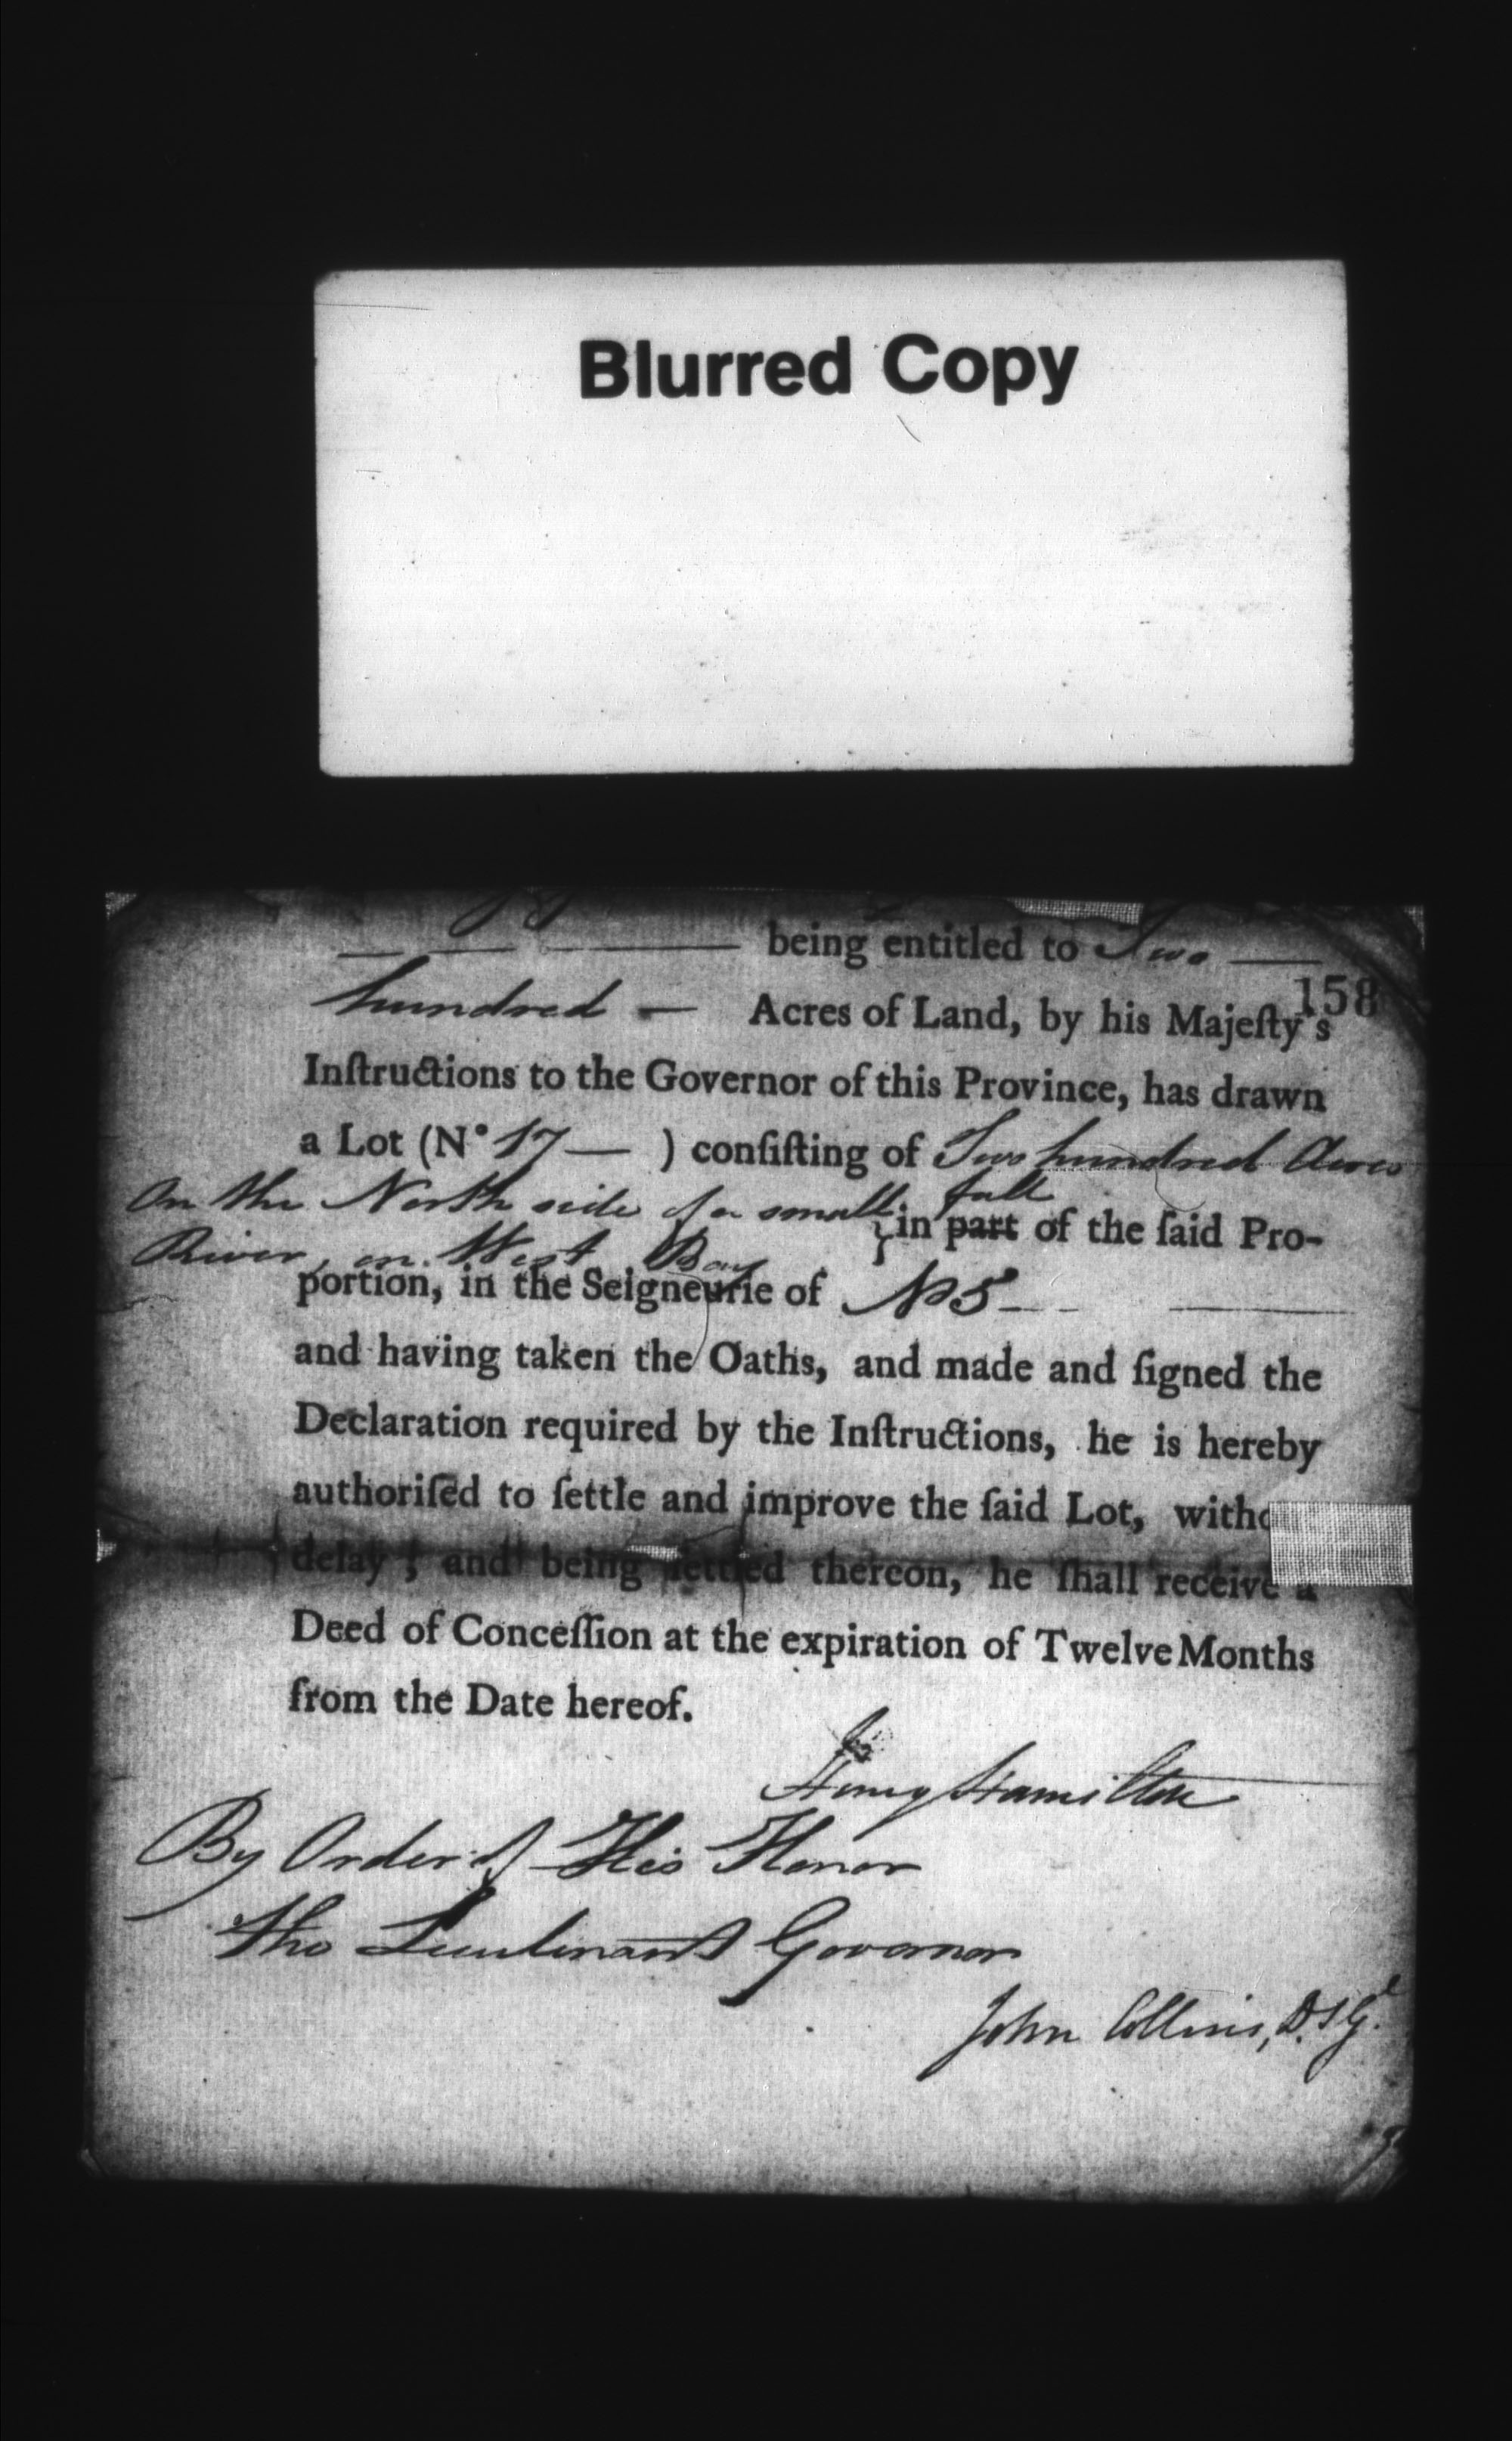 Blurred Copy
being entitled to Two
158
hundred — Acres of Land, by his Majeſty's
Inſtructions to the Governor of this Province, has drawn
a Lot (N° 17 — ) conſiſting of Two hundred Acres
On the North side of a small full
in part of the ſaid Pro-
River, in West Bay
portion, in the Seigneurie of No 5
and having taken the Oaths, and made and ſigned the
Declaration required by the Inſtructions, he is hereby
authoriſed to ſettle and improve the ſaid Lot, witho
delay ; and being ſettled thereon, he ſhall receive a
Deed of Conceſſion at the expiration of Twelve Months
from the Date hereof.
Henry Hamilton
By Order of His Honor
the Lieutenant Governor
John Collins, D.S.Gl.